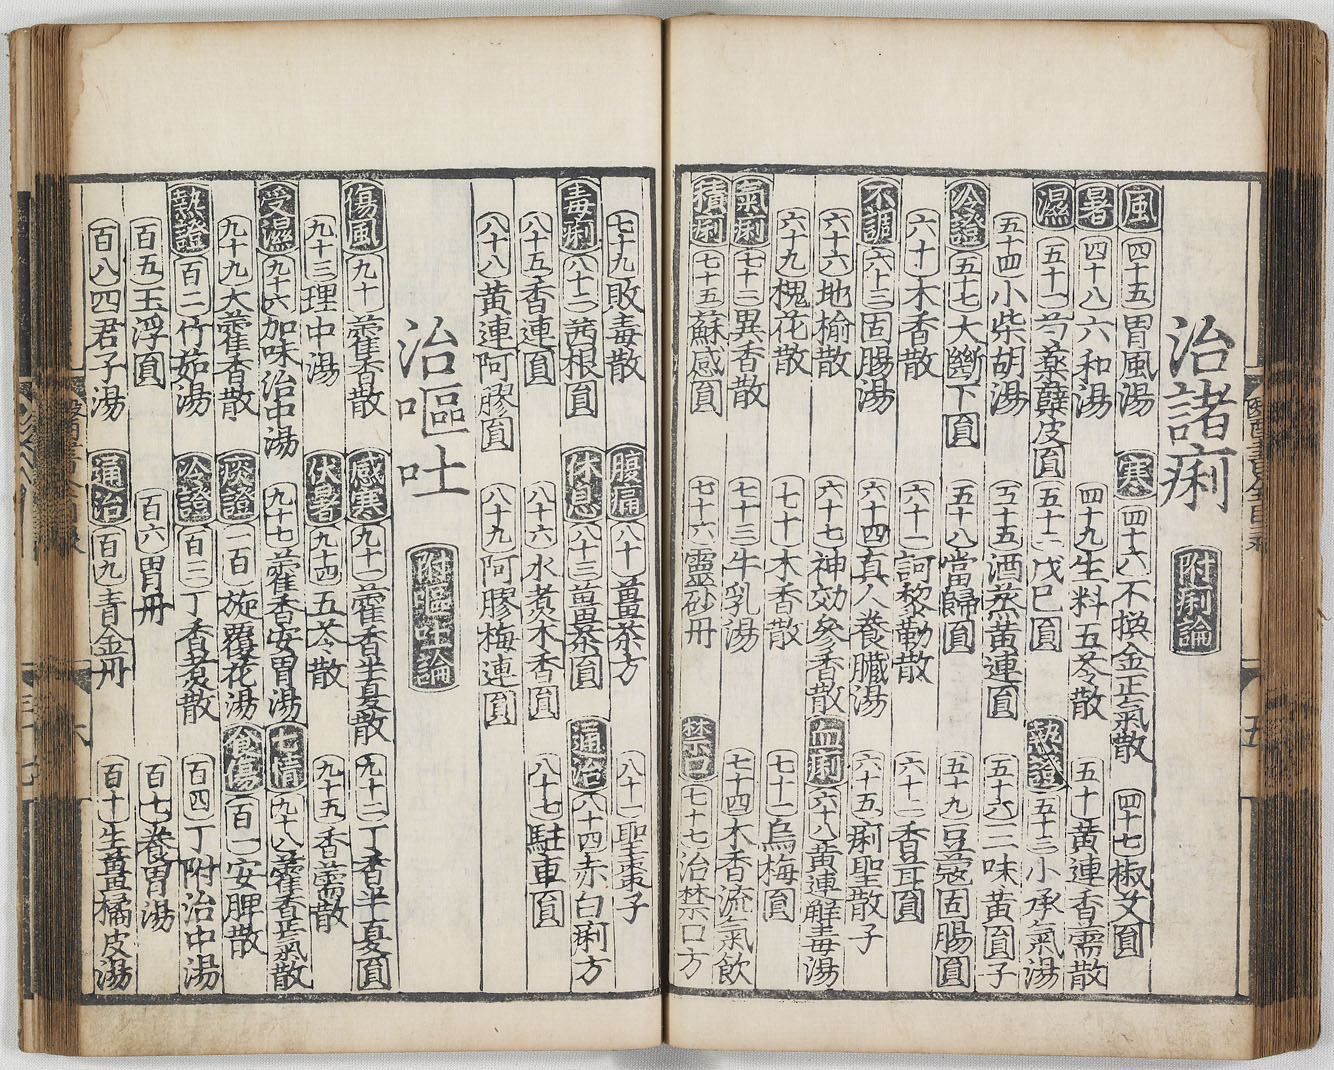 治諸痢 附痢論
風 四十五 胃風湯 寒 四十六 不換金正氣散 四十七 椒艾圓
暑 四十八 六和湯 四十九 生料五苓散 五十 黃連香薷散
濕 五十一 芍藥蘗皮圓 五十二 戊巳圓 熱證 五十三 小承氣湯
五十四 小柴胡湯 五十五 酒蒸黃連圓 五十六 三味黃圓子
冷證 五十七 大斷下圓 五十八 當歸圓 五十九 豆蔻固腸圓
六十 木香散 六十一 訶黎勒散 六十二 香茸圓
不調 六十三 固腸湯 六十四 真人養臟湯 六十五 痢聖散子
六十六 地榆散 六十七 神効參香散 血痢 六十八 黃連解毒湯
六十九 槐花散 七十 木香散 七十一 烏梅圓
氣痢 七十二 異香散 七十三 牛乳湯 七十四 木香流氣飲
積痢 七十五 蘇感圓 七十六 靈砂丹 禁口 七十七 治禁口方
七十九 敗毒散 腹痛 八十 薑茶方 八十一 聖棗子
毒痢 八十二 茜根圓 休息 八十三 薑茶圓 通治 八十四 赤白痢方
八十五 香連圓 八十六 水煮木香圓 八十七 駐車圓
八十八 黃連阿膠圓 八十九 阿膠梅連圓
治嘔吐 附嘔吐論
傷風 九十 藿香散 感寒 九十一 藿香半夏散 九十二 丁香半夏圓
九十三 理中湯 伏暑 九十四 五苓散 九十五 香薷散
受濕 九十六 加味治中湯 九十七 藿香安胃湯 七情 九十八 藿香正氣散
九十九 大藿香散 痰證 一百 旋覆花湯 食傷 百一 安脾散
熱證 百二 竹茹湯 冷證 百三 丁香煮散 百四 丁附治中湯
百五 玉浮圓 百六 胃丹 百七 養胃湯
百八 四君子湯 通治 百九 青金丹 百十 生薑橘皮湯